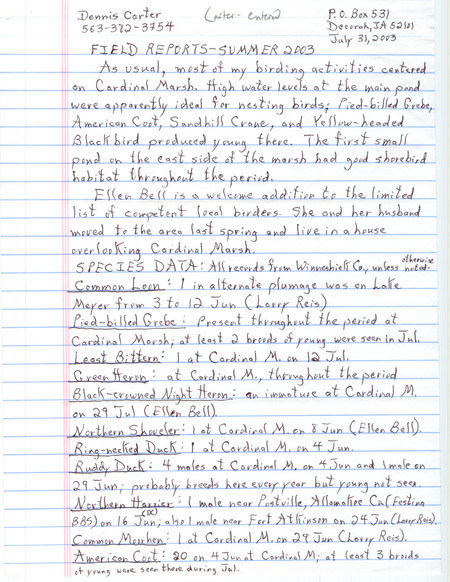 Dennis Carter (Enter-entered P.O. Box 531
563-382-3754 Decorah, IA 52101
July 31, 2003
FIELD REPORTS-SUMMER 2003
As usual, most of my birding activities centered
on Cardinal Marsh. High water levels at the main pond
were apparently ideal for nesting birds; Pied-billed Grebe,
American Coot, Sandhill Crane, and Yellow-headed
Blackbird produced young there. The first small
pond on the east side of the marsh had good shorebird
habitat throughout the period.
Ellen Bell is a welcome addition to the limited
list of competent local birders. She and her husband
moved to the area last spring and live in a house
overlooking Cardinal Marsh.
SPECIES DATA: All records from Winneshiek Co., unless otherwise noted.
Common Loon: 1 in alternate plumage was on Lake
Meyer from 3 to 12 Jun (Larry Reis)
Pied-billed Grebe: Present throughout the period at
Cardinal Marsh; at least 2 broods of young were seen in Jul.
Least Bittern: 1 at Cardinal M. on 12 Jul.
Green Heron: at Cardinal M., throughout the period
Black-crowned Night Heron: an immature at Cardinal M.
on 29 Jul (Ellen Bell).
Northern Shoveler: 1 at Cardinal M. on 8 Jun (Ellen Bell).
Ring-necked Duck: 1 at Cardinal M. on 4 Jun.
Ruddy Duck: 4 males at Cardinal M. on 4 Jun and 1 male on
29 Jun; probably breeds here every year but young not seen.
Northern Harrier: 1 male near Postville, Allamakee Co. (Festina
BBS) on 16 Jun (DC); also 1 male near Fort Atkinson on 24 Jun (Larry Reis).
Common Moorhen: 1 at Cardinal M. on 29 Jun (Larry Reis).
American Coot: 20 on 4 Jun at Cardinal M; at least 3 broods
of young were seen there during Jul.